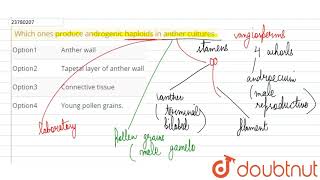 23780207
Which ones produce androgenic haploids in anther cultures.
Option1 Anther wall
Option2 Tapetal layer of anther wall
Option3 Connective tissue
Option4 Young pollen grains.
stamens
angiosperms
4 whorls
androecium
(male
reproductive)
anther
(terminal
bilobed)
filament
laboratory
Pollen grains
(male gamete
doubtnut